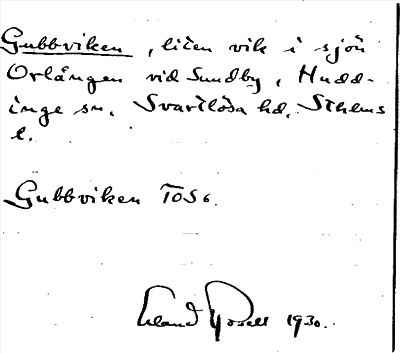 Gubbviken, liten vik i sjön
Orlången vid Sundby, Hudd-
inge sn, Svartlösa hd, Sthlms
l.
Gubbviken TOS 6.
Erland Rosell 1930.